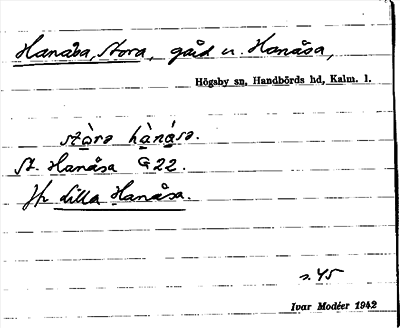 Hanåsa, Stora, gård u. Hanåsa,
Högsby sn, Handbörds hd, Kalm. l.
stòrə hànásə.
St. Hanåsa G 22.
Jfr Lilla Hanåsa.
s. 45
Ivar Modéer 1942